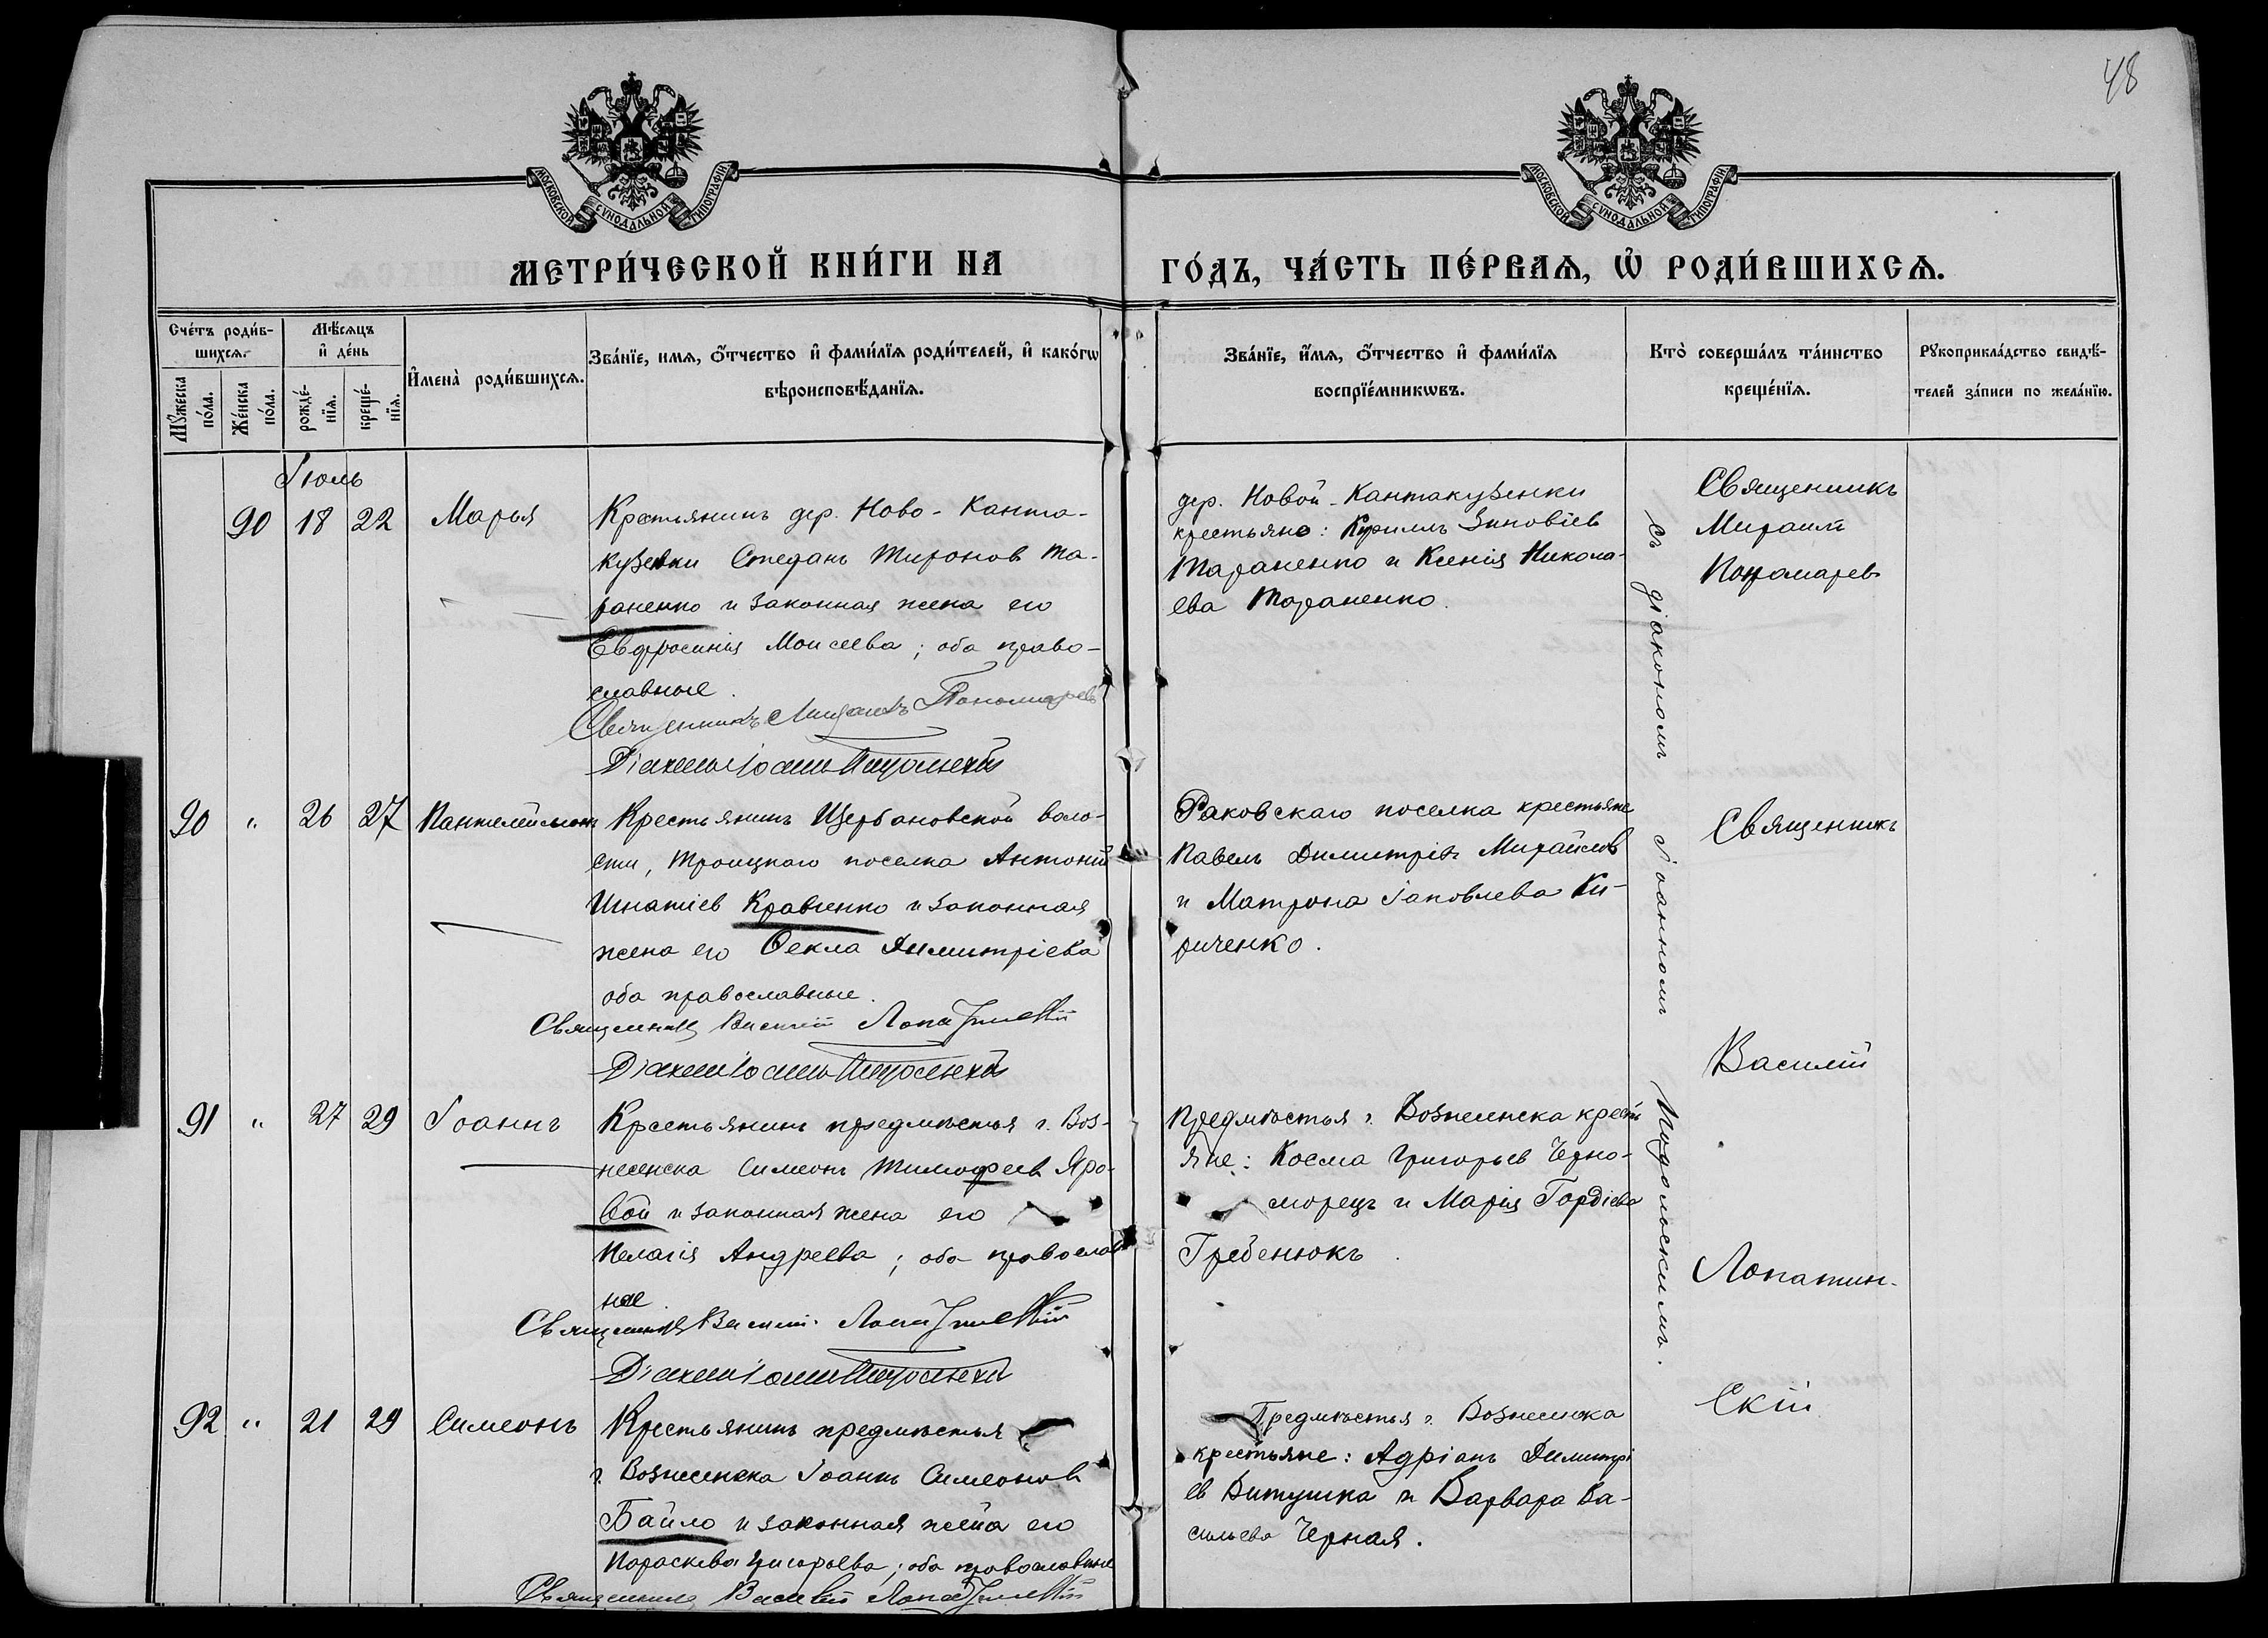 48
МОСКОВСКОЙ СѴНОДАЛЬНОЙ ТИПОГРАФІИ
МОСКОВСКОЙ СѴНОДАЛЬНОЙ ТИПОГРАФІИ
МЕТРИ́ЧЕСКОЙ КНИ́ГИ НА ГО́ДЪ, ЧА́СТЬ ПЕ́РВАѦ, Ѡ҆ РОДИ́ВШИХСѦ.
Сче́тъ роди́в-
шихсѧ.
Мꙋ́жеска
по́ла.
Же́нска
по́ла.
Мѣ́сѧцъ
и҆ де́нь
рожде́-
нїѧ.
креще́-
нїѧ.
И҆мена̀ роди́вшихсѧ.
Зва́нїе, имѧ, ѻ҆́тчество и҆ фами́лїѧ роди́телей, и҆ како́гѡ
вѣроисповѣ́данїѧ.
Зва́нїе, и҆́мѧ, ѻ҆́тчество и҆ фами́лїѧ
воспрїе́мникѡвъ.
Кто̀ соверша́лъ та́инство
креще́нїѧ.
Рꙋкоприкла́дство свидѣ́-
телей за́писи по жела́нїю.
Іюль
90 18 22 Марья
Крестьянинъ дер. Ново-Канта-
кузенки Стефанъ Тихонов Та-
раненко и законная жена его
Евфросинія Моисеева; оба право-
славные.
Священникъ Михаилъ Пономаревъ
Діаконъ Іоаннъ Подольскій
дер. Новой-Кантакузенки
крестьяне: Кириллъ Зиновіев
Тараненко и Ксенія Никола-
ева Тараненко.
Священникъ
Михаилъ
Пономарев
съ діакономъ Іоанномъ Подольскимъ.
90 " 26 27 Пантелеймонъ
Крестьянинъ Щербановской воло-
сти, Троицкаго поселка Антоній
Игнатіев Кравченко и законная
жена его Ѳекла Димитріева
оба православные.
Священникъ Василій Лопатинскій
Діаконъ Іоаннъ Подольскій
Раковскаго поселка крестьяне
Павелъ Димитріев Михайлов
и Матрона Іаковлева Ки-
риченко.
Священникъ
Василій
Лопатин-
скій
91 " 27 29 Іоаннъ
Крестьянинъ предмѣстья г. Воз-
несенска Симеонъ Тимофеев Яро-
вой и законная жена его
Пелагія Андреева; оба православ
ные.
Священникъ Василій Лопатинскій
Діаконъ Іоаннъ Подольскій
Предмѣстья г. Вознесенска кресть
яне: Косма Григорьев Черно-
морецъ и Марія Гордіева
Гребенюкъ.
92 " 21 29 Симеонъ
Крестьянинъ предмѣстья
г. Вознесенска Іоаннъ Симеонов
Байло и законная жена его
Параскева Григорьева; оба православные
Священникъ Василій Лопатинскій
Предмѣстья г. Вознесенска
крестьяне: Адріанъ Димитрі
ев Витушка и Варвара Ва-
сильева Черная.